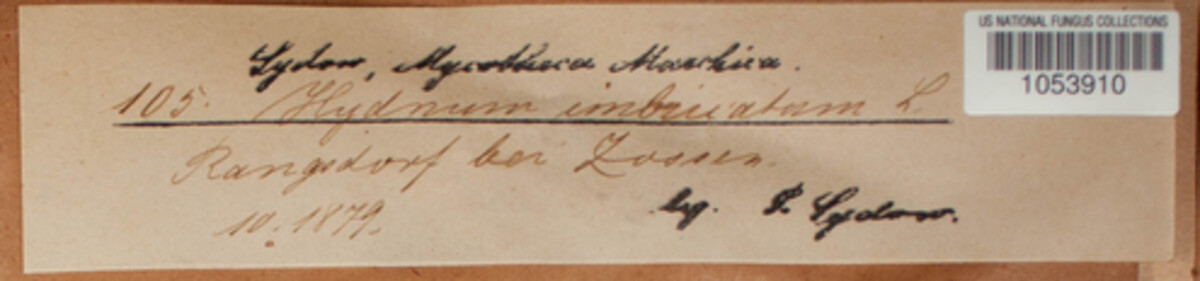 Sydow, Mycotheca Marchica.
105. Hydnum imbricatum L.
Rangsdorf bei Zossen.
10. 1879.
leg. P. Sydow.
US NATIONAL FUNGUS COLLECTIONS
1053910